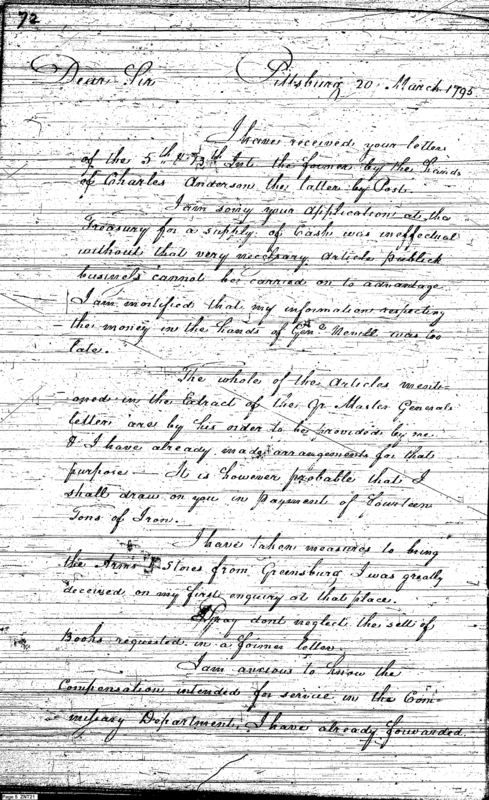 72
Dear Sir Pittsburg 20 March 1795
I have received your letters
of the 5th & 13th Inst the former by the hands
of Charles Anderson the latter by Post.
I am sorry your application at the
Treasury for a supply of Cash was ineffectual
without that very necessary Article publick
business cannot be carried on to advantage.
I am mortified that my information respecting
the money in the hands of Genl. Nevill was too
late.
The whole of the Articles menti-
oned in the Extract of the Qr Master Generals
letter are by his order to be provided by me
& I have already made arrangements for that
purpose — It is however probable that I
shall draw on you in Payment of fourteen
Tons of Iron.
I have taken measures to bring
the Arms & Stores from Greensburg I was greatly
deceived on my first enquiry at that place.
Pray dont neglect the sett of
Books requested in a former letter.
I am anxious to know the
Compensation intended for service in the Com-
missary Department, I have already forwarded